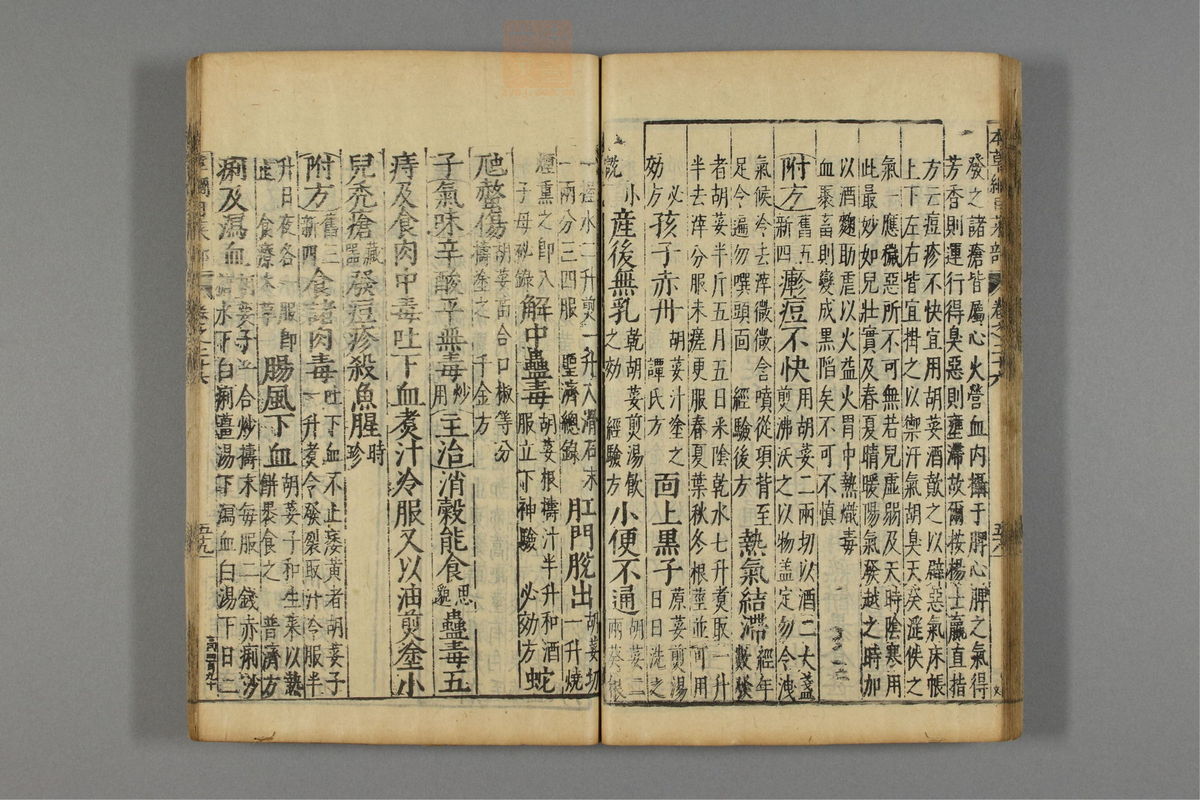 本草綱目菜部 卷之二十六 五八
發之諸瘡皆屬心火營血內攝于脾心脾之氣得
芳香則運行得臭惡則壅滯故爾按楊士瀛直指
方云痘疹不快宜用胡荽酒歕之以辟惡氣床帳
上下左右皆宜掛之以禦汗氣胡臭天癸淫佚之
氣一應穢惡所不可無若兒虛弱及天時陰寒用
此最妙如兒壯實及春夏晴暖陽氣發越之時加
以酒麴助虐以火益火胃中熱熾毒
血聚畜則變成黑陷矣不可不慎
附方 舊五新四 瘮痘不快 用胡荽二兩切以酒二大盞煎沸沃之以物盖定勿令洩
氣候冷去滓微微含噴從項背至足令遍勿噀頭面 經驗後方 熱氣結滯 經年數發
者胡荽半斤五月五日采陰乾水七升煑取一升半去滓分服未瘥更服春夏葉秋冬根莖並可用
必効方 孩子赤丹 胡荽汁塗之 譚氏方 面上黑子 䕲荽煎湯日日洗之
小說 產後無乳 乾胡荽煎湯飲之効 經驗方 小便不通 胡荽二兩葵根
一握水二升煎一升入滑石末一兩分三四服 聖濟總錄 肛門脫出 胡荽切一升燒
煙熏之即入 子母秘錄 解中蠱毒 胡荽根擣汁半升和酒服立下神驗 必効方 蛇
虺螫傷 胡荽苗合口椒等分擣塗之 千金方
子氣味辛酸平無毒 炒用 主治消穀能食 思邈 蠱毒五
痔及食肉中毒吐下血煑汁冷服又以油煎塗小
兒禿瘡 藏器 發痘疹殺魚腥 時珍
附方 舊三新四 食諸肉毒 吐下血不止痿黃者胡荽子一升煑令發裂取汁冷服半
升日夜各一服即止 食療本草 腸風下血 胡荽子和生菜以熱餅裹食之 普濟方
痢及瀉血 胡荽子一合炒擣末每服二錢赤痢砂糖水下白痢薑湯下瀉血白湯下日二
卷之二十六 五九